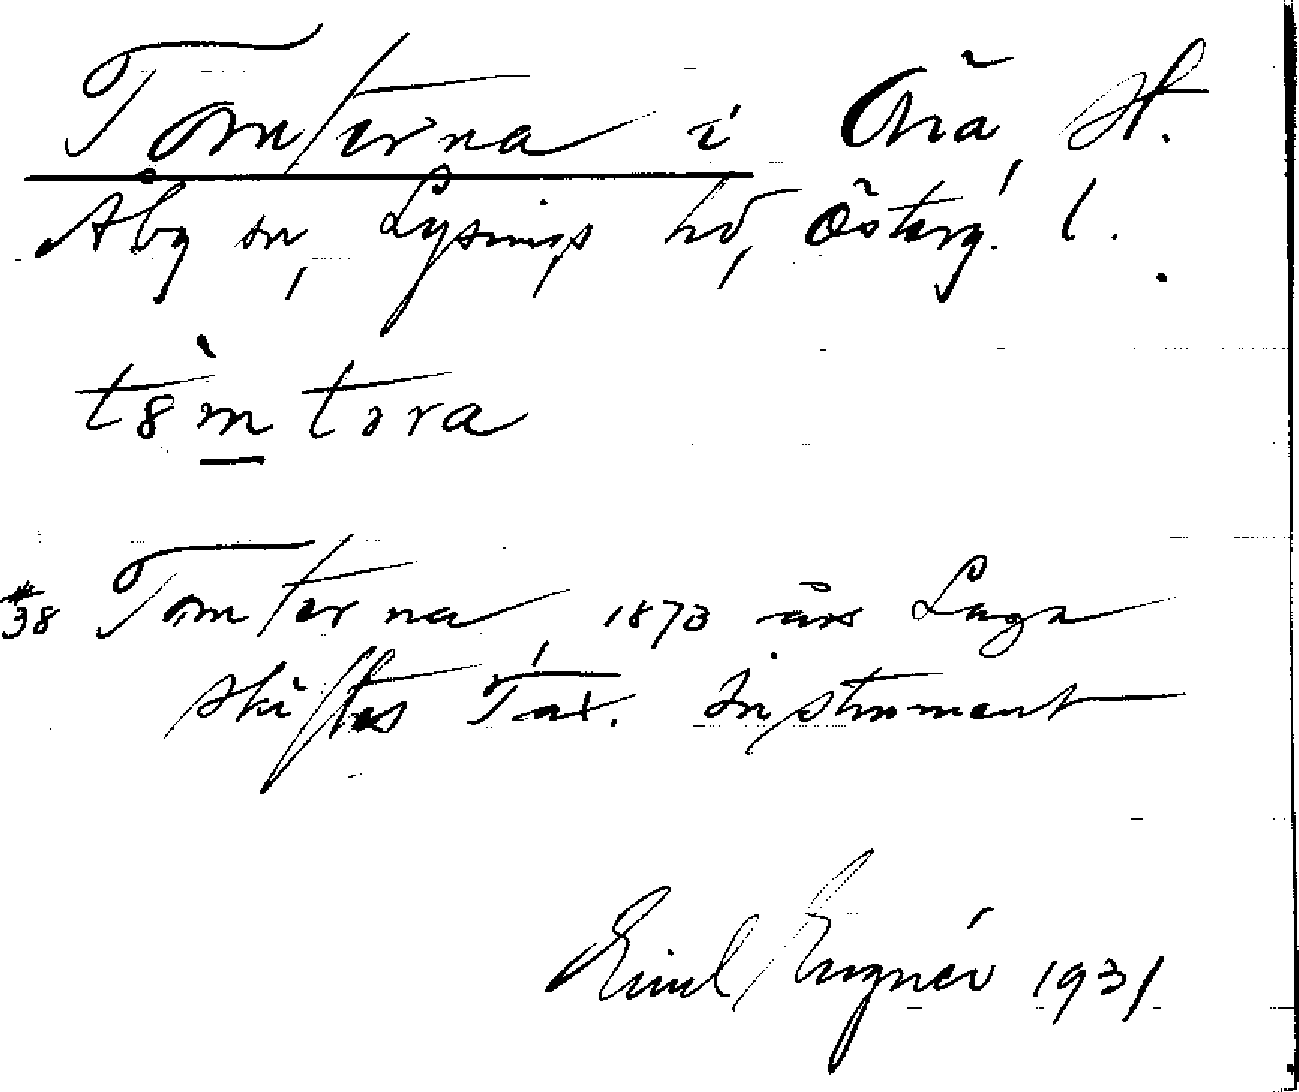 Tomterna i Chrå, St.
Åby sn, Lysings hd, Österg. l.
tömtɔra
*38 Tomterna, 1873 års Laga
skiftes Tax. Instrument
Emil Engnér 1931